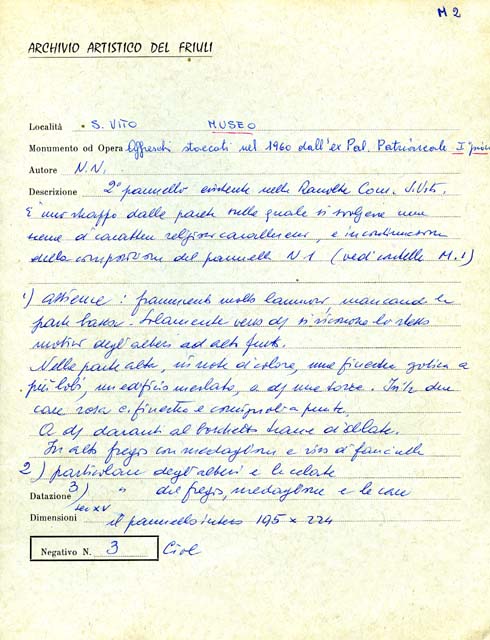 M 2
ARCHIVIO ARTISTICO DEL FRIULI
Località S. VITO MUSEO
Monumento od Opera Affreschi staccati nel 1960 dall'ex Pal. Patriarcale I°
Autore N.N.
Descrizione 2° pannello esistente nella Raccolta Com. S. Vito.
È uno strappo dalla parete sulla quale si svolgeva una
scena di carattere religioso cavalleresco, e in continuazione
della composizione del pannello N 1 (vedi cartella M.1)
1) assieme: frammenti molto lacunosi mancando la
parte bassa. Solamente verso ds si riconosce lo stesso
motivo degli alberi ad alto fusto.
Nella parte alta, in note di colore, una finestra gotica a
più lobi, un edificio merlato, a ds una torre. Tra le due
case rosa c. finestre e comignoli a punta.
A ds davanti al boschetto tracce di celate.
In alto fregio con medaglione e viso di fanciulla
2) particolare degli alberi e le celate
3) " del fregio, medaglione e le case
Datazione sec XV
Dimensioni il pannello intero 195 x 224
Negativo N. 3 Ciol